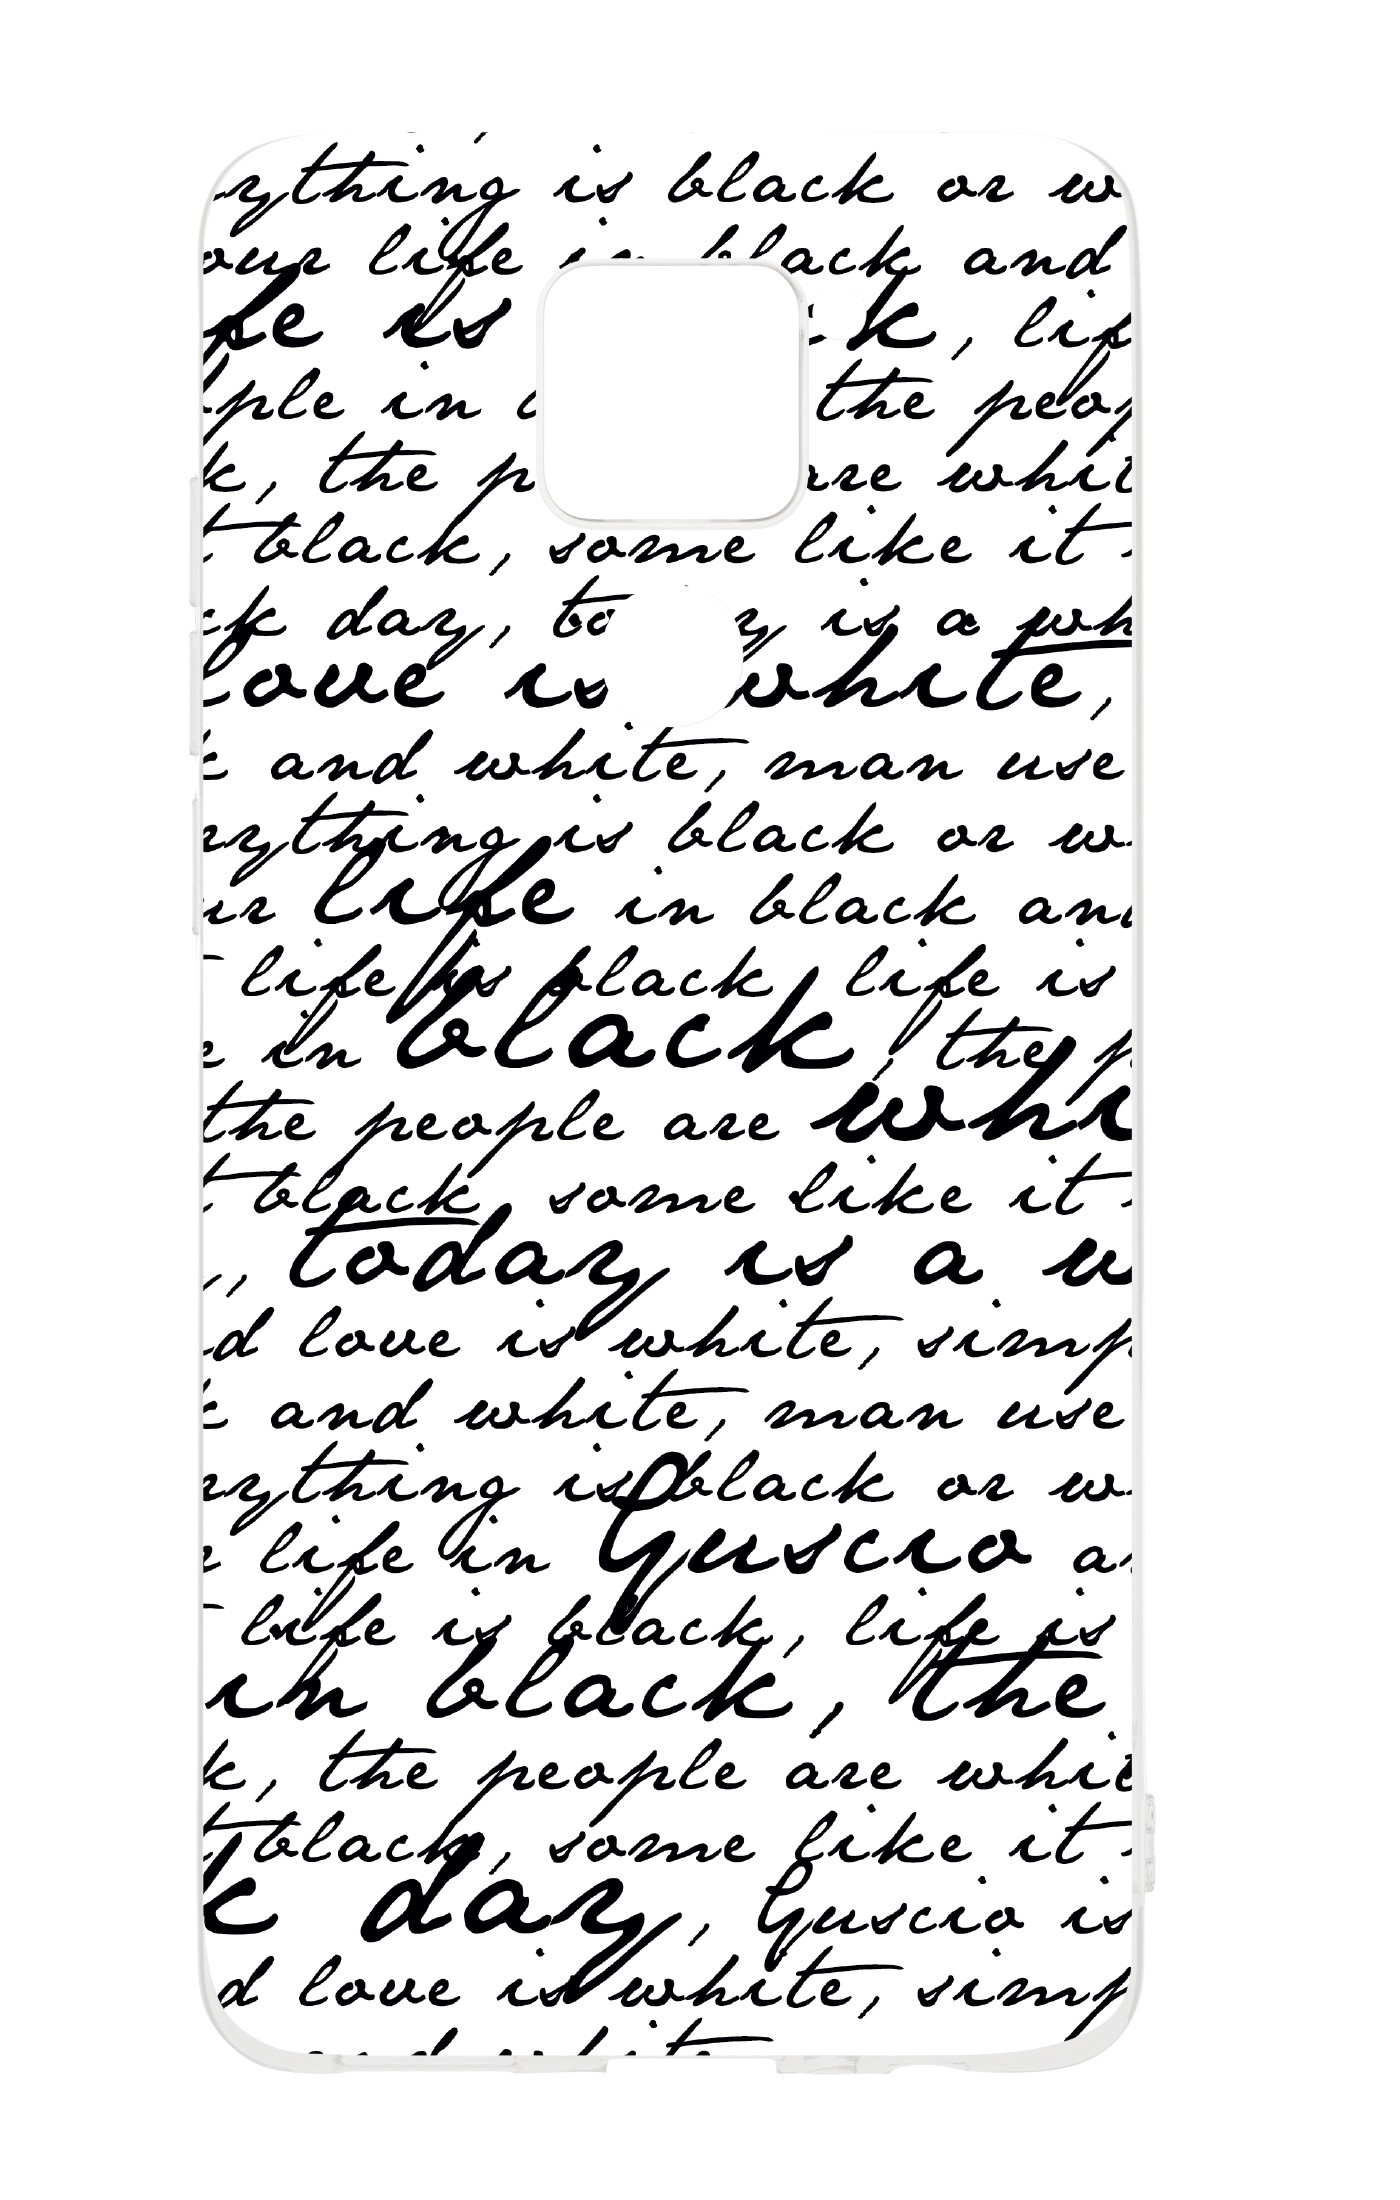 rything is black or w
our life in black and
fe is k, lif
ple in the peop
k, the p are whit
t black, some like it
ck day, to y is a wh
love is white,
k and white, man use
rything is black or w
ur life in black an
life is black, life is
e in black, the p
the people are whi
t black, some like it
, today is a w
d love is white, simp
k and white, man use
rything is black or w
r life in Guscio a
life is black, life is
in black, the
k, the people are whit
t black, some like it
k day, Guscio is
d love is white, simp
and white